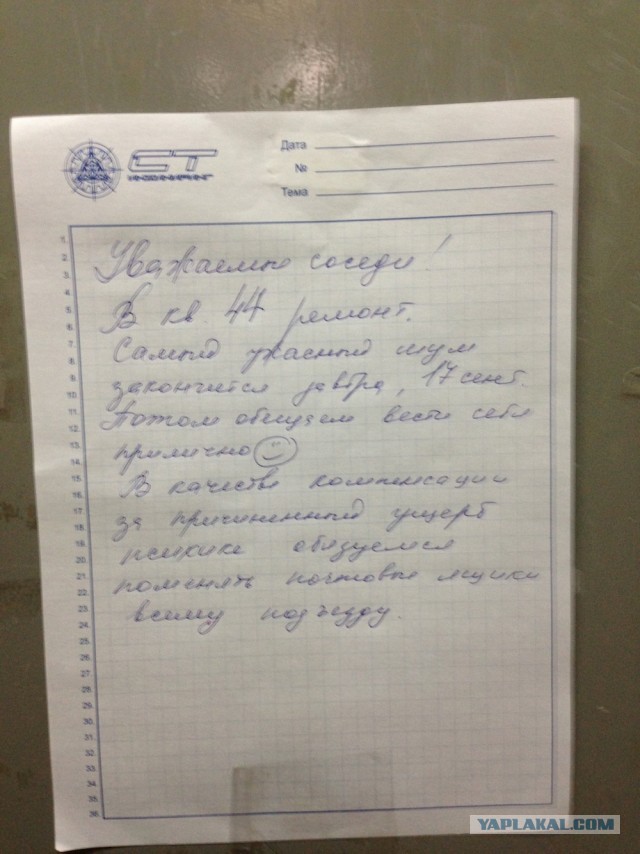 СТ
Дата
№
Тема
1.
2.
3.
4.
5.
6.
7.
8.
9.
10.
11.
12.
13.
14.
15.
16.
17.
18.
19.
20.
21.
22.
23.
24.
25.
26.
27.
28.
29.
30.
31.
32.
33.
34.
35.
36.
Уважаемые соседи!
В кв. 44 ремонт.
Самый ужасный шум
закончится завтра, 17 сент.
Потом обещаем вести себя
прилично
В качестве компенсации
за причиненный ущерб
психике обязуемся
поменять почтовые ящики
всему подъезду.
YAPLAKAL.COM